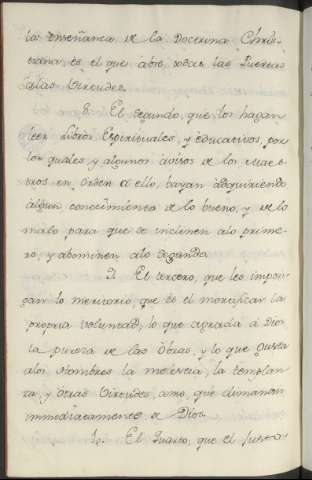 la enseñanza de la Doctrina Chris-
tiana, es el que abre todas las Puertas
alas Virtudes.
8. El segundo, que los hagan
leer Libros Espirituales, y educativos, por
los quales, y algunos avisos de los Maes-
tros en orden a ello, bayan adquiriendo
algun conocimiento de lo bueno, y de lo
malo para que se inclinen alo prime-
ro, y abominen alo segundo.
9. El tercero, que les impon-
gan lo meritorio que es el mortificar la
propria voluntad, lo que agrada á Dios
la pureza de las Obras, y lo que gusta
alos Hombres la la templan-
za, y otras Virtudes, como, que dimanan
immediatamente de Dios.
10. El Quarto, que el